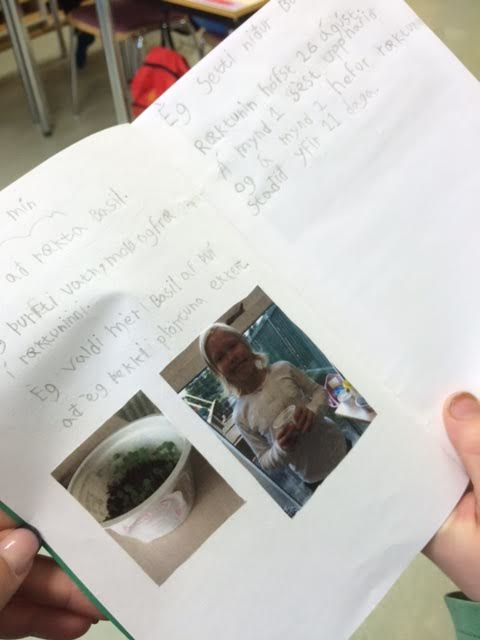 mín
að rækta Basil.
þurfti vatn, mold og fræ
í ræktuninni.
Èg valdi mér Basil af því
að èg þekkti plöntuna ekkert.
Èg setti niður
Ræktunin hófst 26 ágúst
Á mynd 1 sést upphafið
og á mynd 2 hefur ræktunin
staðið yfir 11 daga.